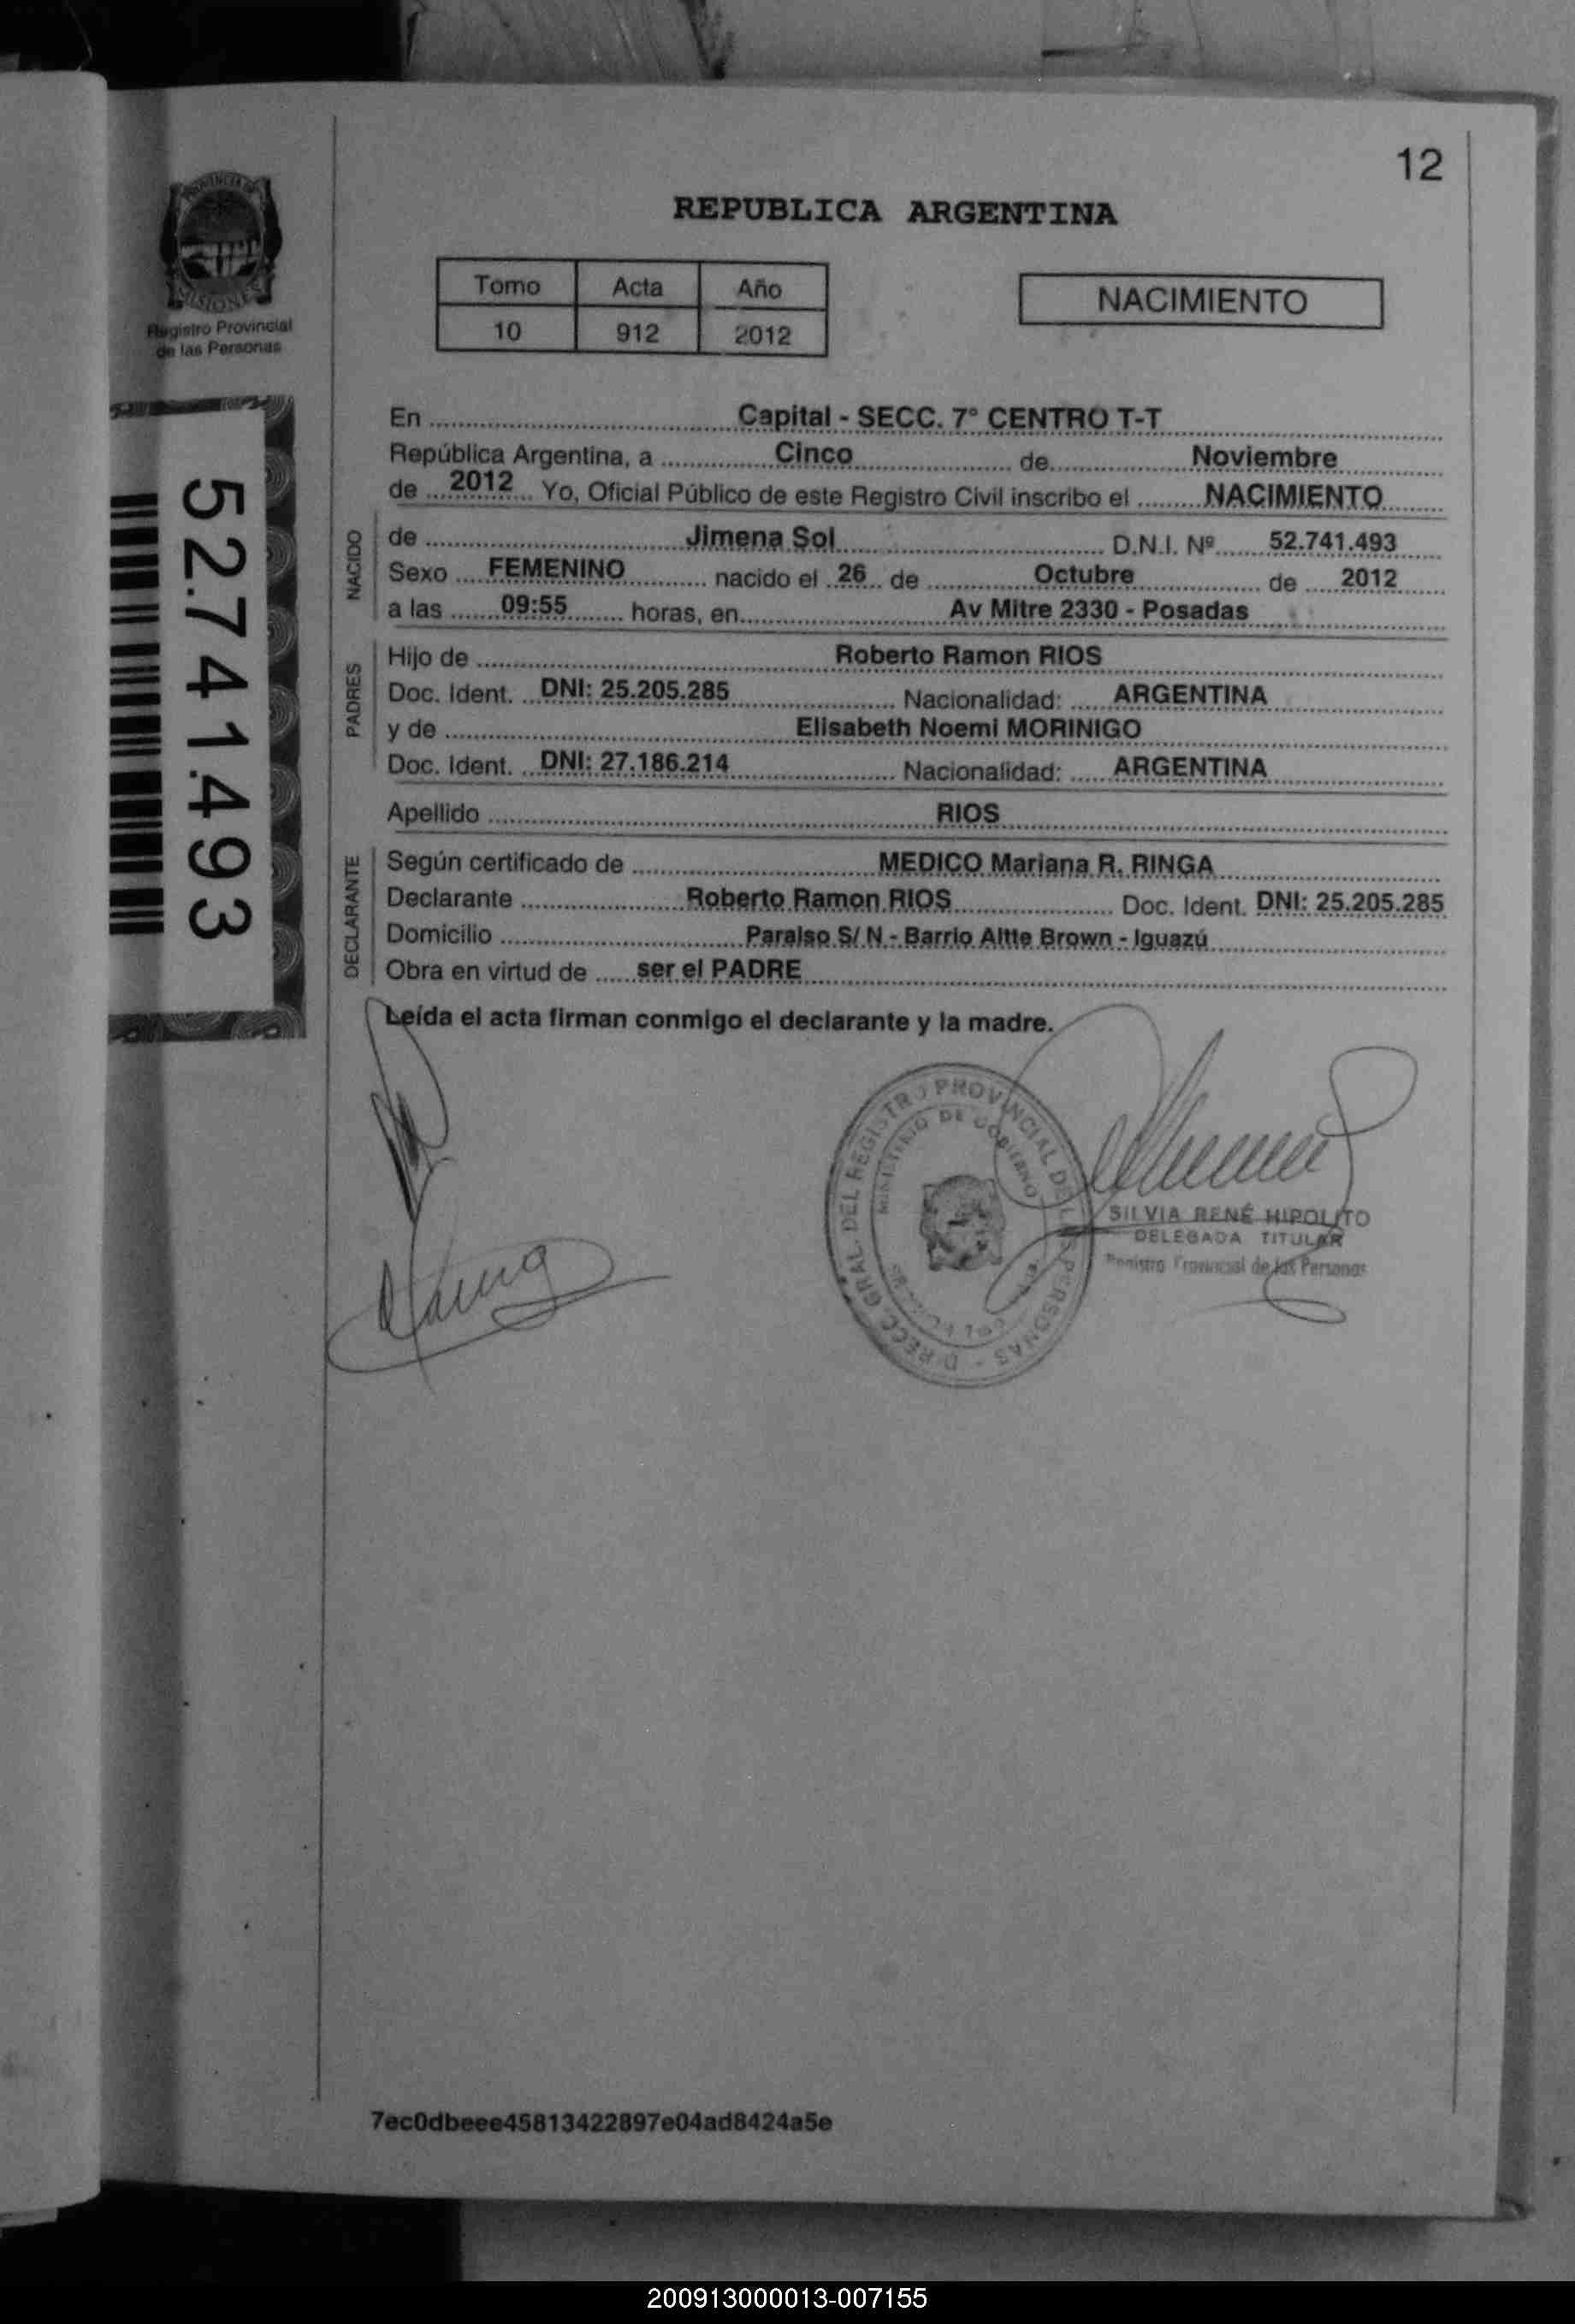 12
REPUBLICA ARGENTINA
PROVINCIA DE
MISIONES
Registro Provincial
de las Personas
Tomo Acta Año
10 912 2012
NACIMIENTO
52.741.493
En Capital - SECC. 7° CENTRO T-T
República Argentina, a Cinco de Noviembre
de 2012 Yo, Oficial Público de este Registro Civil inscribo el NACIMIENTO
NACIDO
de Jimena Sol D.N.I. Nº 52.741.493
Sexo FEMENINO nacido el 26 de Octubre de 2012
a las 09:55 horas, en Av Mitre 2330 - Posadas
PADRES
Hijo de Roberto Ramon RIOS
Doc. Ident. DNI: 25.205.285 Nacionalidad: ARGENTINA
y de Elisabeth Noemi MORINIGO
Doc. Ident. DNI: 27.186.214 Nacionalidad: ARGENTINA
Apellido RIOS
DECLARANTE
Según certificado de MEDICO Mariana R. RINGA
Declarante Roberto Ramon RIOS Doc. Ident. DNI: 25.205.285
Domicilio Paraiso S/ N - Barrio Altte Brown - Iguazú
Obra en virtud de ser el PADRE
Leída el acta firman conmigo el declarante y la madre.
DIRECC. GRAL. DEL REGISTRO PROVINCIAL DE LAS PERSONAS -
MINISTERIO DE GOBIERNO
SILVIA RENÉ HIPOLITO
DELEGADA TITULAR
Registro Provincial de las Personas
7ec0dbeee45813422897e04ad8424a5e
200913000013-007155